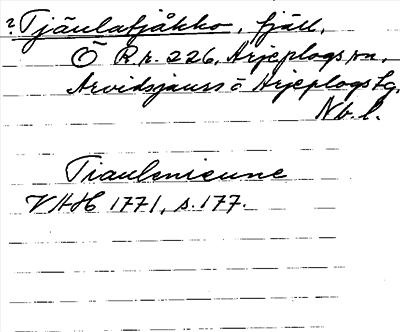 ? Tjäulatjåkko, fjäll,
Ö R.r. 226, Arjeplogs sn,
Arvidsjaurs o Arjeplogs tg,
Nb. l.
Traulenieune
VAH 1771, s. 177.